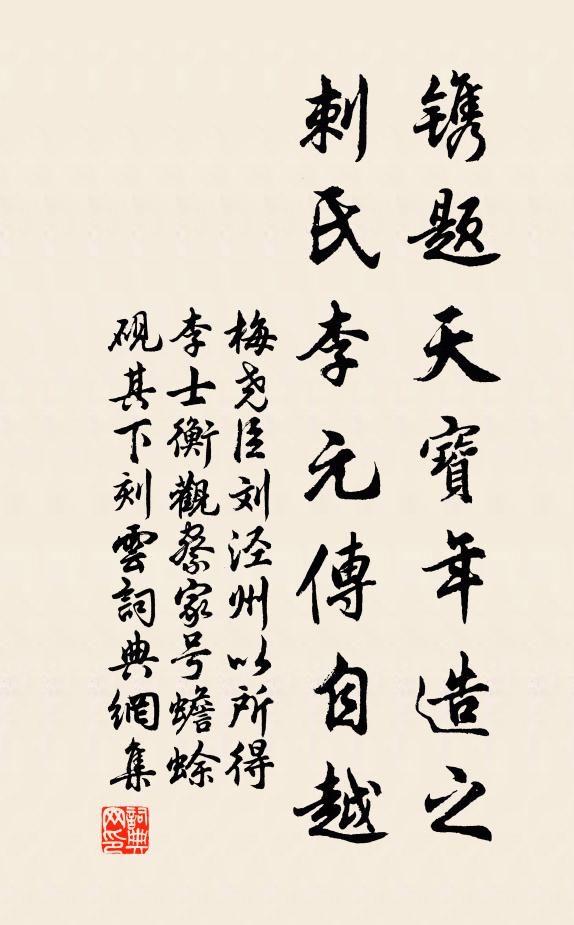 镌题天寶年造之
刺氏李元傳自越
梅尧臣刘泾州以所得
李士衡觀察家号蟾蜍
砚其下刻雲詞典網集
詞典网印